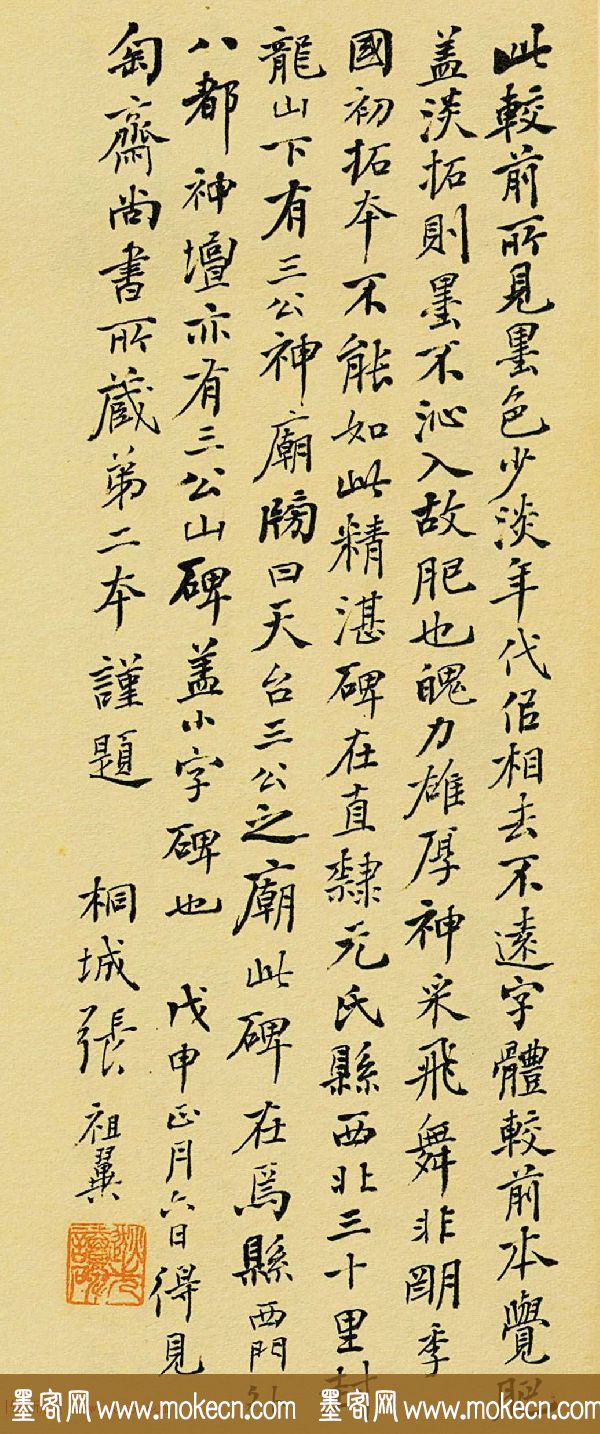 此較前所見墨色少淡年代但相去不遠字體較前本覺肥
蓋淡拓則墨不沁入故肥也魄力雄厚神采飛舞非明季
國初拓本不能如此精湛碑在直隸元氏縣西北三十里封
龍山下有三公神廟牓曰天台三公之廟此碑在焉縣西門外
八都神壇亦有三公山碑蓋小字碑也 戊申正月六日得見
匋齋尚書所藏第二本謹題 桐城張祖翼
墨客网 www.mokecn.com 墨客网 www.mokecn.com